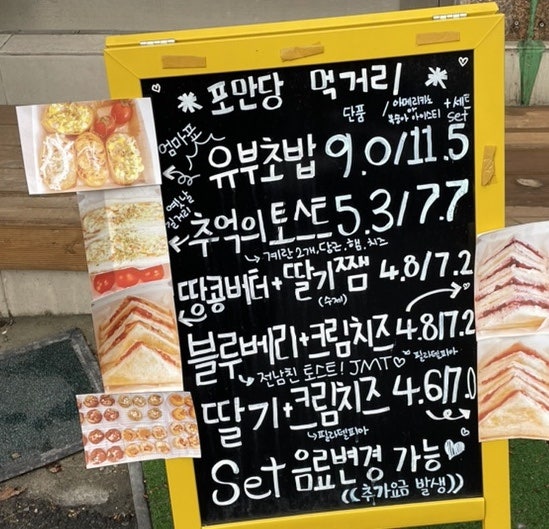 포만당 먹거리
단품 / 아메리카노 or 복숭아 아이스티 + 세트 set
엄마표
유부초밥 9.0/11.5
옛날 길거리
추억의토스트 5.3/7.7
계란2개, 당근, 햄, 치즈
땅콩버터+딸기쨈 4.8/7.2
(수제)
블루베리+크림치즈 4.8/7.2
전남친 토스트! JMT♡ 필라델피아
딸기+크림치즈 4.6/7.0
필라델피아
Set 음료변경 가능
((추가요금 발생))